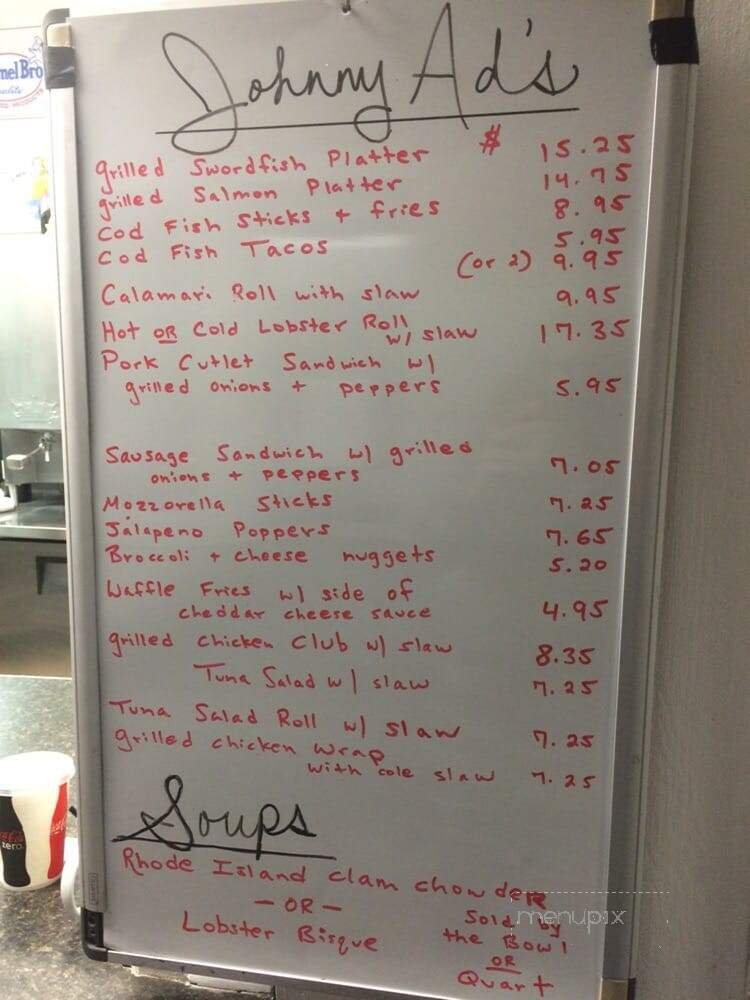 Johnny Ad's
grilled Swordfish Platter $ 15.25
grilled Salmon Platter 14.75
Cod Fish Sticks + fries 8.95
Cod Fish Tacos 5.95
(or 2) 9.95
Calamari Roll with slaw 9.95
Hot OR Cold Lobster Roll
w/ slaw 17.35
Pork Cutlet Sandwich w/
grilled onions + peppers 5.95
Sausage Sandwich w/ grilled
onions + peppers 7.05
Mozzorella Sticks 7.25
Jalapeno Poppers 7.65
Broccoli + cheese nuggets 5.20
Waffle Fries w/ side of
cheddar cheese sauce 4.95
grilled chicken Club w/ slaw 8.35
Tuna Salad w/ slaw 7.25
Tuna Salad Roll w/ slaw 7.25
grilled chicken wrap
with cole slaw 7.25
Soups
Rhode Island clam chowdeR
- OR -
Lobster Bisque
Sold by
the Bowl
OR
Quart
menupix
mel Bro
zero